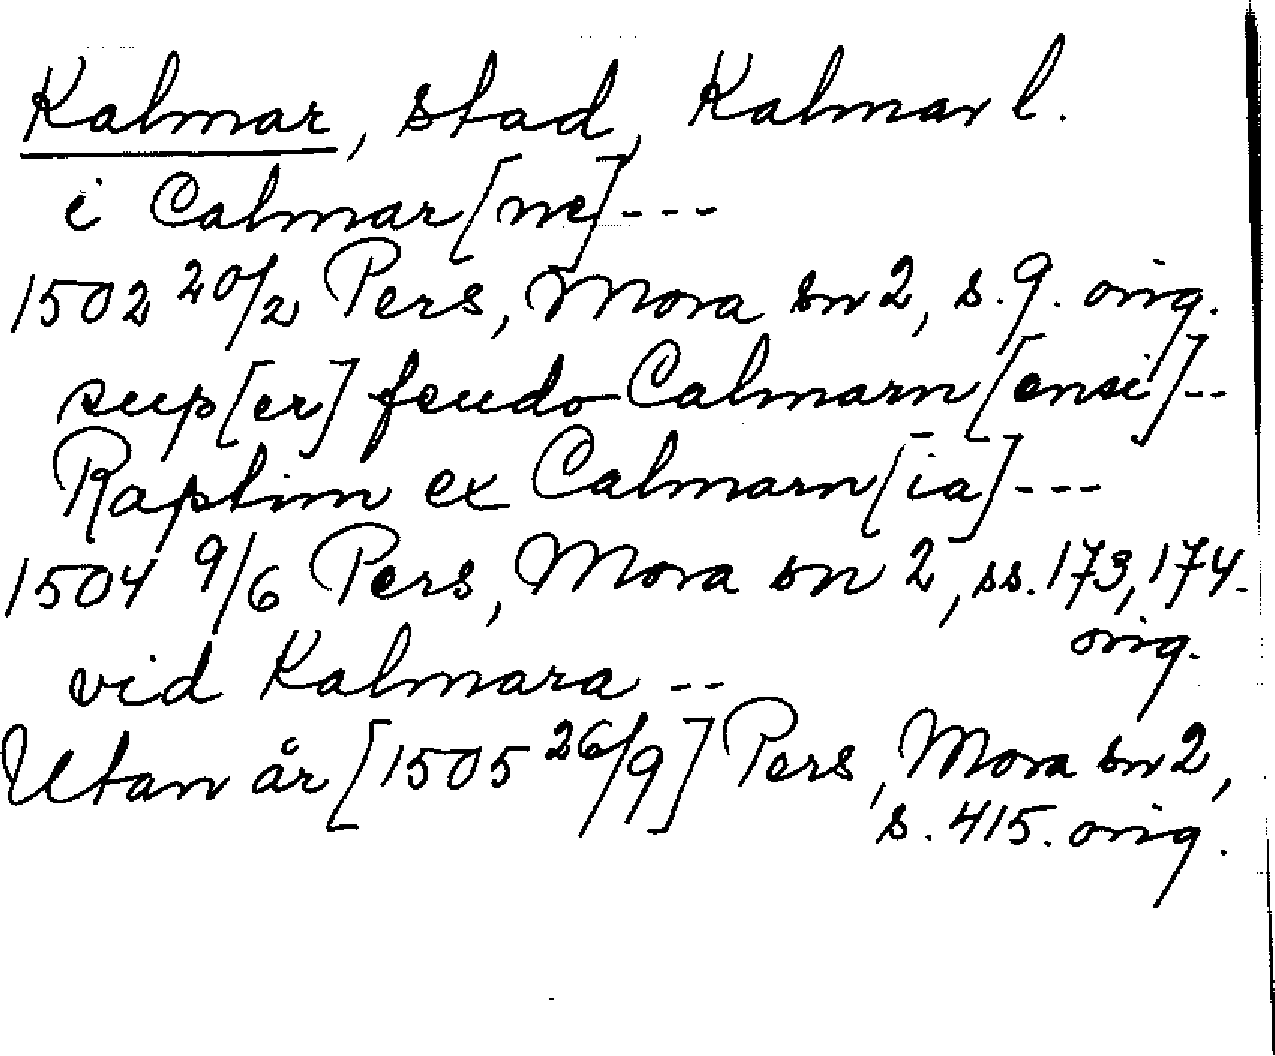 Kalmar, stad, Kalmar l.
i Calmar[ne]---
1502 20/2 Pers, Mora sn 2, s. 9. orig.
sup[er] feudo Calmarn[ensi]--
Raptim ex Calmarn[ia]---
1504 9/6 Pers, Mora sn 2, ss. 173, 174.
orig.
vid Kalmara --
Utan år [1505 26/9] Pers, Mora sn 2,
s. 415. orig.